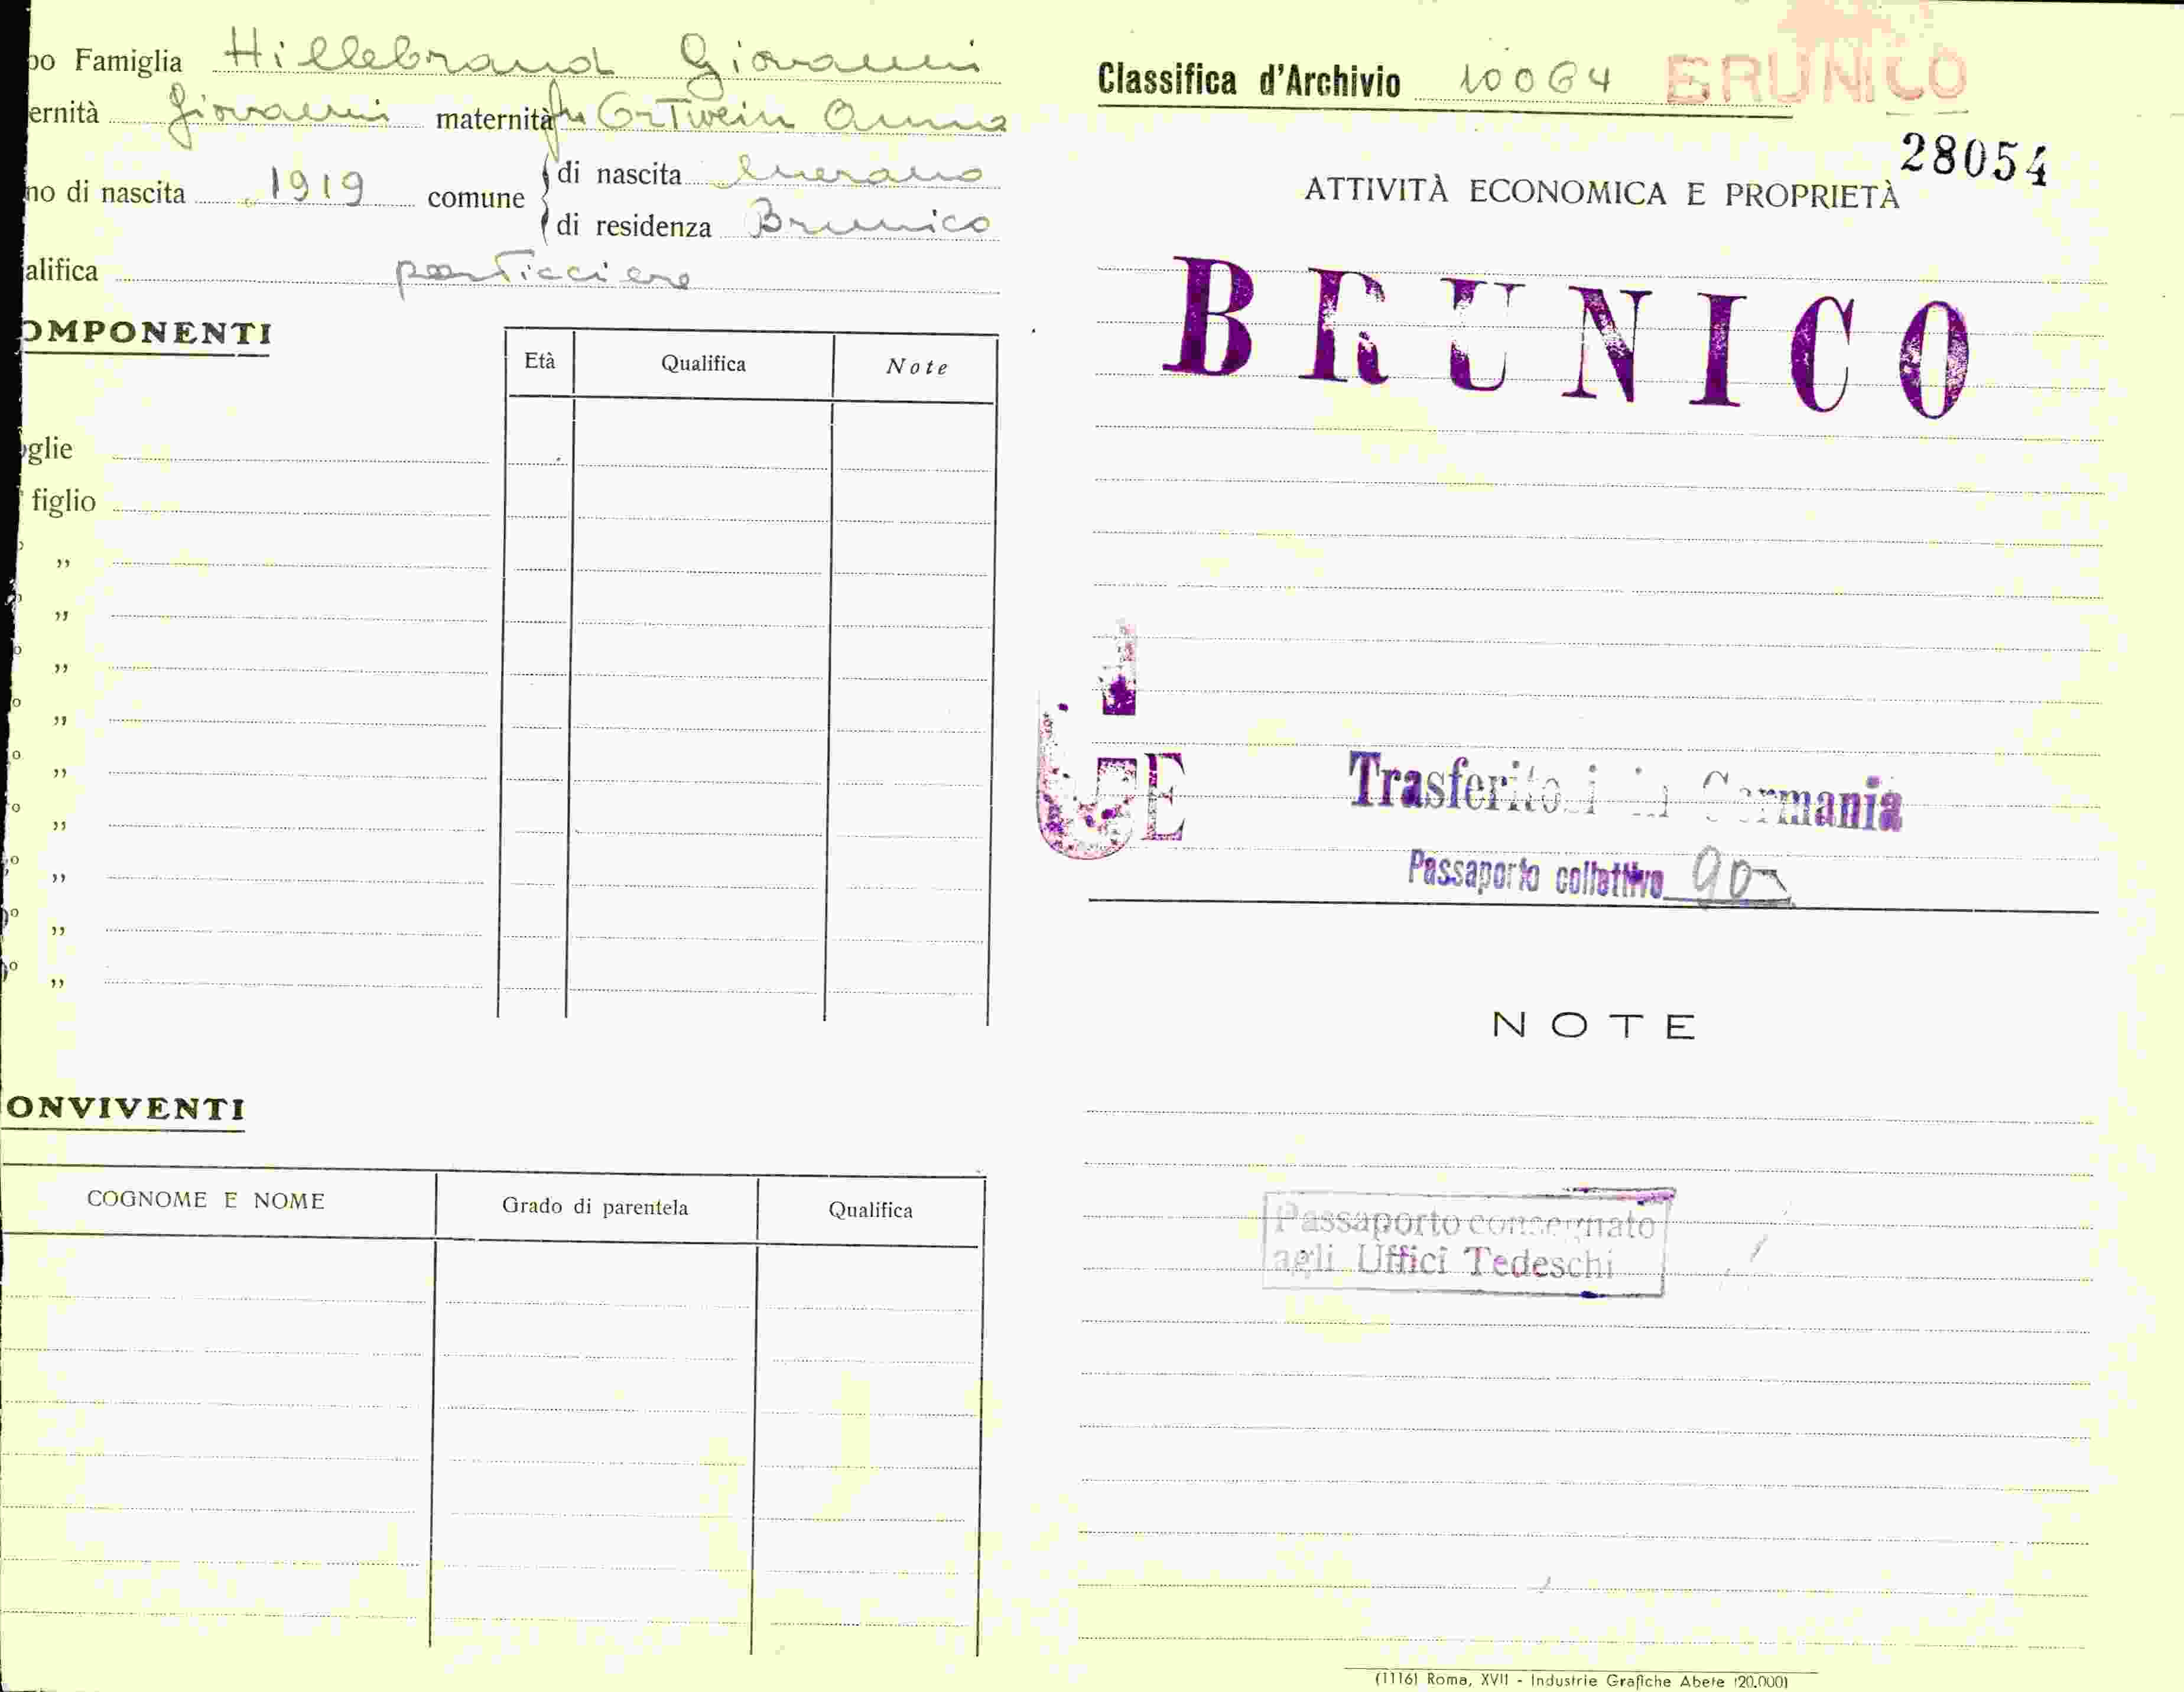 po Famiglia Hillebrand Giovanni
ernità Giovanni maternità fu Ortwein Anna
no di nascita 1919 comune
di nascita Merano
di residenza Brunico
alifica pasticciere
OMPONENTI
Età Qualifica Note
oglie
figlio
„
„
„
„
„
„
„
„
„
ONVIVENTI
COGNOME E NOME Grado di parentela Qualifica
Classifica d'Archivio 10064 BRUNICO
28054
ATTIVITÀ ECONOMICA E PROPRIETÀ
BRUNICO
Trasferito i in Germania
Passaporto collettivo 90
NOTE
Passaporto consegnato
agli Uffici Tedeschi
(1116) Roma, XVII - Industrie Grafiche Abete (20.000)